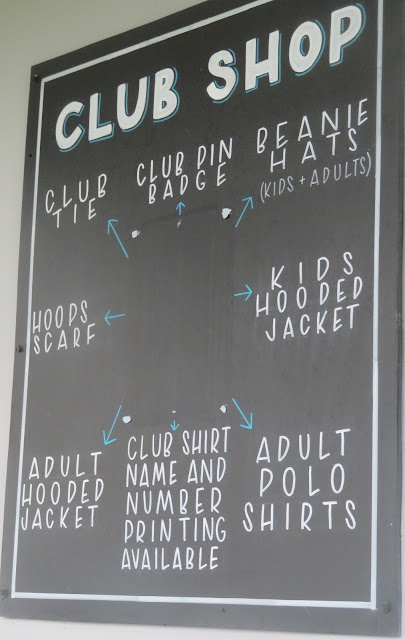 CLUB SHOP
CLUB
TIE
CLUB PIN
BADGE
BEANIE
HATS
(KIDS + ADULTS)
HOOPS
SCARF
KIDS
HOODED
JACKET
ADULT
HOODED
JACKET
CLUB SHIRT
NAME AND
NUMBER
PRINTING
AVAILABLE
ADULT
POLO
SHIRTS